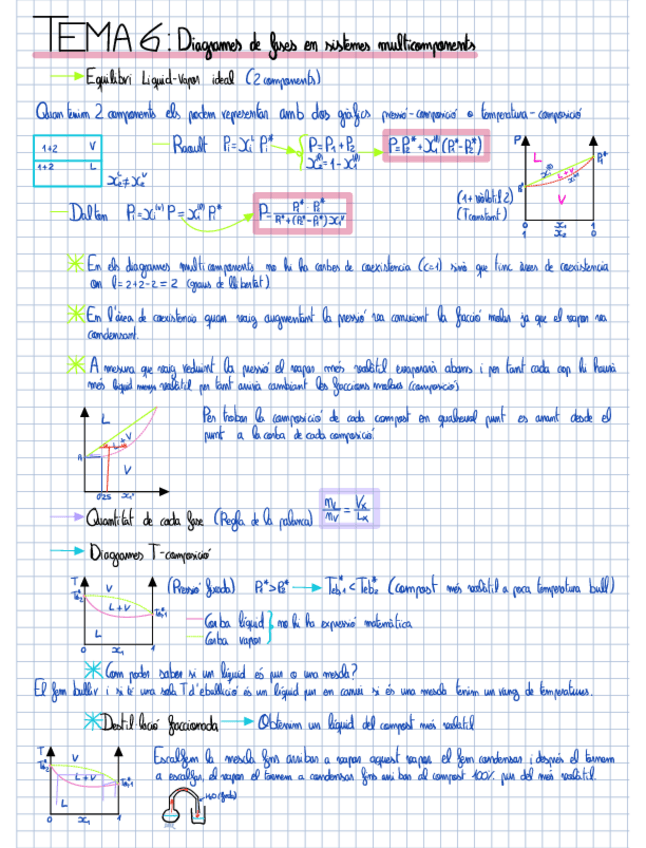 TEMA 6: Diagrames de fases en sistemes multicomponents
Equilibri Liquid-Vapor ideal (2 components)
Quan tenim 2 components els podem representar amb dos gràfics pressió-composició o temperatura-composició
1+2 V
1+2 L
x₂ᴸ≠x₂ⱽ
Raoult Pᵢ=xᵢᴸ Pᵢ*
P=P₁+P₂
P=P₂*+x₁⁽ˡ⁾(P₁*-P₂*)
P
L
L+V
V
P₁*
(1+volàtil 2)
(T constant)
0 x₁ 1
1 x₂ 0
Dalton Pᵢ=xᵢ⁽ᵛ⁾ P=xᵢ⁽ˡ⁾ Pᵢ*
En els diagrames multicomponents no hi ha corbes de coexistencia (c=1) sinó que tinc àrees de coexistencia
on l=2+2-2=2 (graus de llibertat)
En l'àrea de coexistencia quan vaig augmentant la pressió va canviant la fracció molar ja que el vapor va
condensant.
A mesura que vaig reduint la pressió el vapor més volàtil evaporarà abans i per tant cada cop hi haurà
més liquid menys volàtil per tant anirà cambiant les fraccions molars (composició)
L
L+V
V
0'25 x₁
Per trobar la composició de cada compost en qualsevol punt es anant desde el
punt a la corba de cada composició
Quantitat de cada fase (Regla de la palanca)
Diagrames T-composició
T
Teb₂*
V
L+V
L
Teb₁*
0 x₁ 1
(Pressió fixada) P₁*>P₂* Teb₁*<Teb₂* (compost més volàtil a poca temperatura bull)
Corba líquid
Corba vapor
no hi ha expressió matemàtica
Com poder saber si un líquid és pur o una mescla?
El fem bullir i si té una sola T d'ebullició és un líquid pur en canvi si és una mescla tenim un rang de temperatures.
Destil·lació fraccionada Obtenim un líquid del compost més volàtil
T
Teb₂*
V
L+V
L
Teb₁*
0 x₁ 1
Escalfem la mescla fins arribar a vapor aquest vapor el fem condensar i després el tornem
a escalfar, el vapor el tornem a condensar fins arribar al compost 100% pur del més volàtil.